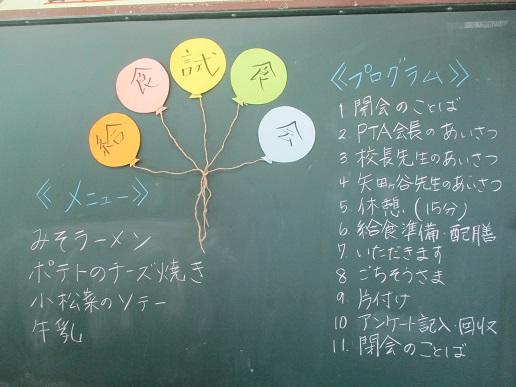 給食試食会
《メニュー》
みそラーメン
ポテトのチーズ焼き
小松菜のソテー
牛乳
《プログラム》
1 開会のことば
2 PTA会長のあいさつ
3 校長先生のあいさつ
4 矢田ヶ谷先生のあいさつ
5 休憩(15分)
6 給食準備・配膳
7. いただきます
8 ごちそうさま
9 片付け
10 アンケート記入・回収
11. 閉会のことば